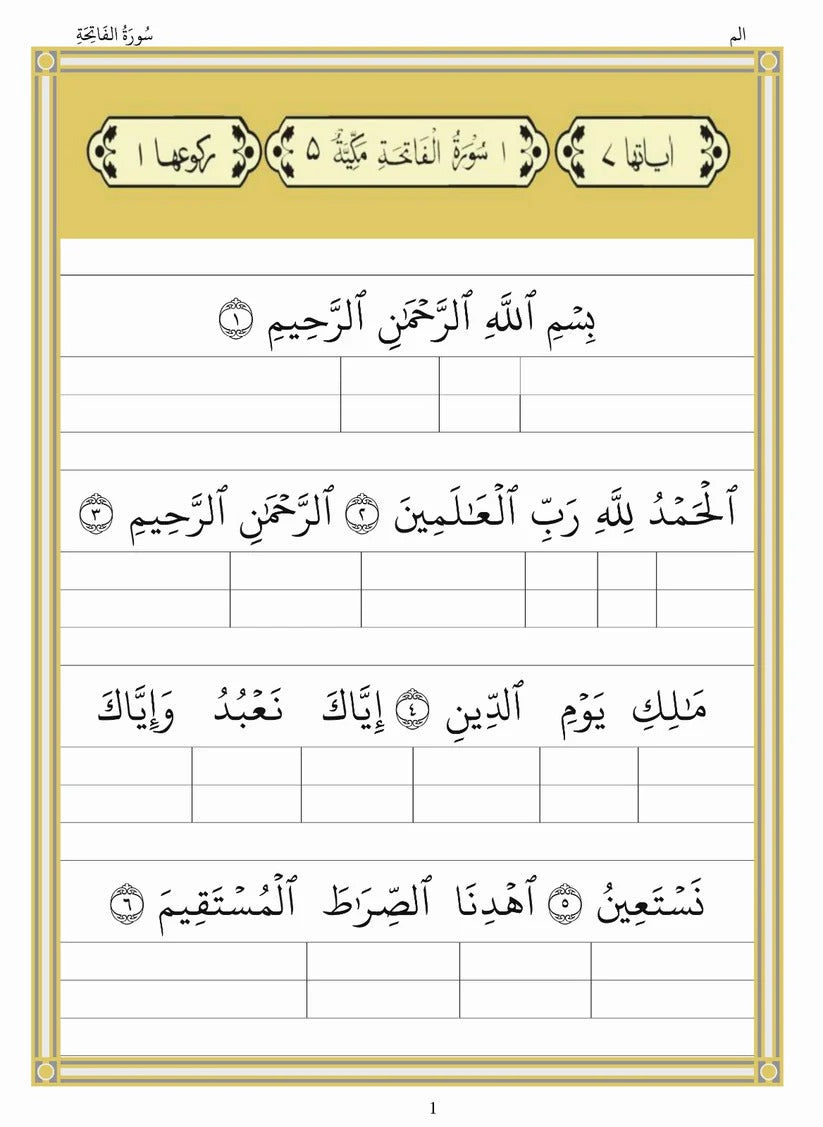 الم سُورَةُ الفَاتِحَةِ
اٰیاتها ٧ ١ سُوْرَةُ الْفَاتِحَةِ مَكِّيَّةٌ ۵ رکوعها ١
بِسۡمِ ٱللَّهِ ٱلرَّحۡمَٰنِ ٱلرَّحِيمِ ١
ٱلۡحَمۡدُ لِلَّهِ رَبِّ ٱلۡعَٰلَمِينَ ٢ ٱلرَّحۡمَٰنِ ٱلرَّحِيمِ ٣
مَٰلِكِ يَوۡمِ ٱلدِّينِ ٤ إِيَّاكَ نَعۡبُدُ وَإِيَّاكَ
نَسۡتَعِينُ ٥ ٱهۡدِنَا ٱلصِّرَٰطَ ٱلۡمُسۡتَقِيمَ ٦
1